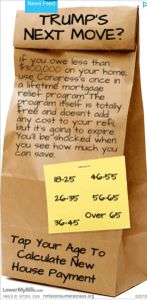 News Feed
TRUMP'S
NEXT MOVE?
If you owe less than
$300,000 on your home,
use Congress's once in
a lifetime mortgage
relief program. The
program itself is totally
free and doesn't add
any cost to your refi
but it's going to expire.
You'll be shocked when
you see how much you
can save.
18-25 46-55
26-35 56-65
36-45 Over 65
Tap Your Age To
Calculate New
House Payment
LowerMyBills.com